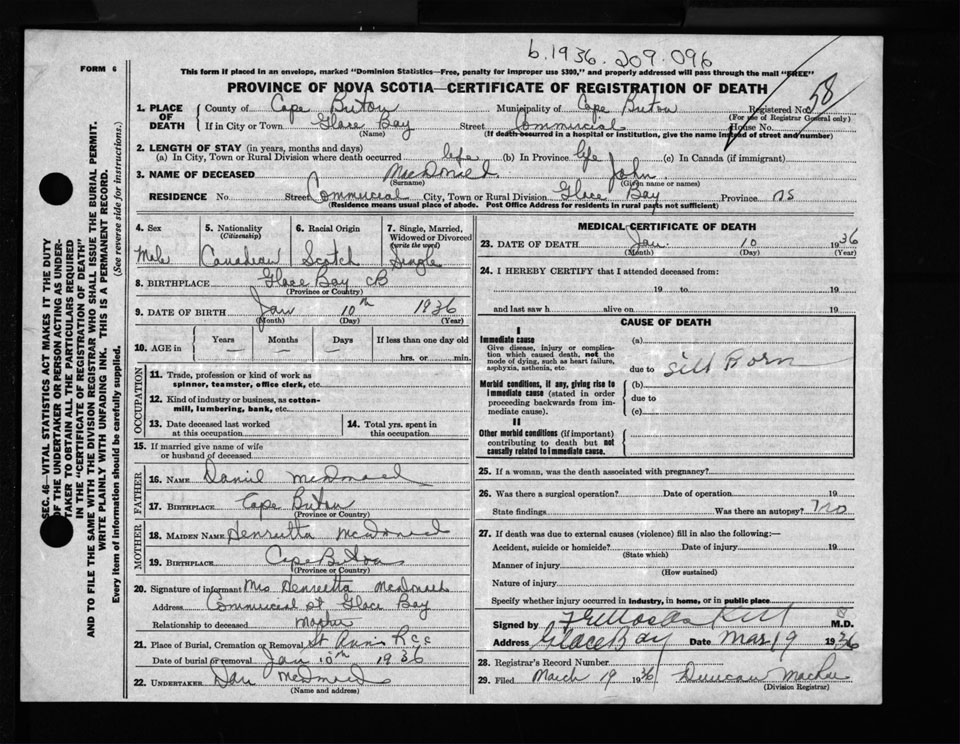 b.1936.209.096
FORM 6
This form if placed in an envelope, marked "Dominion Statistics—Free, penalty for improper use $300," and properly addressed will pass through the mail "FREE"
PROVINCE OF NOVA SCOTIA—CERTIFICATE OF REGISTRATION OF DEATH
58
1. PLACE OF DEATH County of Cape Breton Municipality of Cape Breton Registered No.
(For use of Registrar General only)
If in City or Town Glace Bay Street Commercial House No.
(Name) (If death occurred in a hospital or institution, give the name instead of street and number)
2. LENGTH OF STAY (in years, months and days)
(a) In City, Town or Rural Division where death occurred life (b) In Province life (c) In Canada (if immigrant)
3. NAME OF DECEASED MacDonald John
(Surname) (Given name or names)
RESIDENCE No Street Commercial City, Town or Rural Division Glace Bay Province NS
(Residence means usual place of abode. Post Office Address for residents in rural parts not sufficient)
4. Sex 5. Nationality 6. Racial Origin 7. Single, Married, Widowed or Divorced
(Citizenship) (write the word)
Male Canadian Scotch Single
8. BIRTHPLACE Glace Bay CB
(Province or Country)
9. DATE OF BIRTH Jan 10th 1936
(Month) (Day) (Year)
10. AGE in Years Months Days If less than one day old
— — — hrs. or min.
OCCUPATION
11. Trade, profession or kind of work as spinner, teamster, office clerk, etc.
12. Kind of industry or business, as cotton-mill, lumbering, bank, etc.
13. Date deceased last worked at this occupation 14. Total yrs. spent in this occupation
15. If married give name of wife or husband of deceased
FATHER
16. NAME Daniel McDonald
17. BIRTHPLACE Cape Breton
(Province or Country)
MOTHER
18. MAIDEN NAME Henrietta McDonald
19. BIRTHPLACE Cape Breton
(Province or Country)
20. Signature of informant Mrs Henrietta McDonald
Address Commercial St Glace Bay
Relationship to deceased Mother
21. Place of Burial, Cremation or Removal St Anns
Date of burial or removal Jan 10th 1936
22. UNDERTAKER Dan McDonald
(Name and address)
MEDICAL CERTIFICATE OF DEATH
23. DATE OF DEATH Jan. 10 1936
(Month) (Day) (Year)
24. I HEREBY CERTIFY that I attended deceased from:
19 to 19
and last saw h alive on 19
CAUSE OF DEATH
I
Immediate cause (a)
Give disease, injury or complication which caused death, not the mode of dying, such as heart failure, asphyxia, asthenia, etc. due to Still Born
Morbid conditions, if any, giving rise to immediate cause (stated in order proceeding backwards from immediate cause). (b)
due to
(c)
II
Other morbid conditions (if important) contributing to death but not causally related to immediate cause.
25. If a woman, was the death associated with pregnancy?
26. Was there a surgical operation? Date of operation 19
State findings Was there an autopsy? No
27. If death was due to external causes (violence) fill in also the following:—
Accident, suicide or homicide? Date of injury 19
(State which)
Manner of injury
(How sustained)
Nature of injury
Specify whether injury occurred in industry, in home, or in public place
Signed by M.D.
Address Glace Bay Date Mar 19 1936
28. Registrar's Record Number
29. Filed March 19 1936 Duncan
(Division Registrar)
SEC. 46—VITAL STATISTICS ACT MAKES IT THE DUTY
OF THE UNDERTAKER OR PERSON ACTING AS UNDER-
TAKER TO OBTAIN ALL THE PARTICULARS REQUIRED
IN THE "CERTIFICATE OF REGISTRATION OF DEATH"
AND TO FILE THE SAME WITH THE DIVISION REGISTRAR WHO SHALL ISSUE THE BURIAL PERMIT.
WRITE PLAINLY WITH UNFADING INK. THIS IS A PERMANENT RECORD.
Every item of information should be carefully supplied. (See reverse side for instructions.)